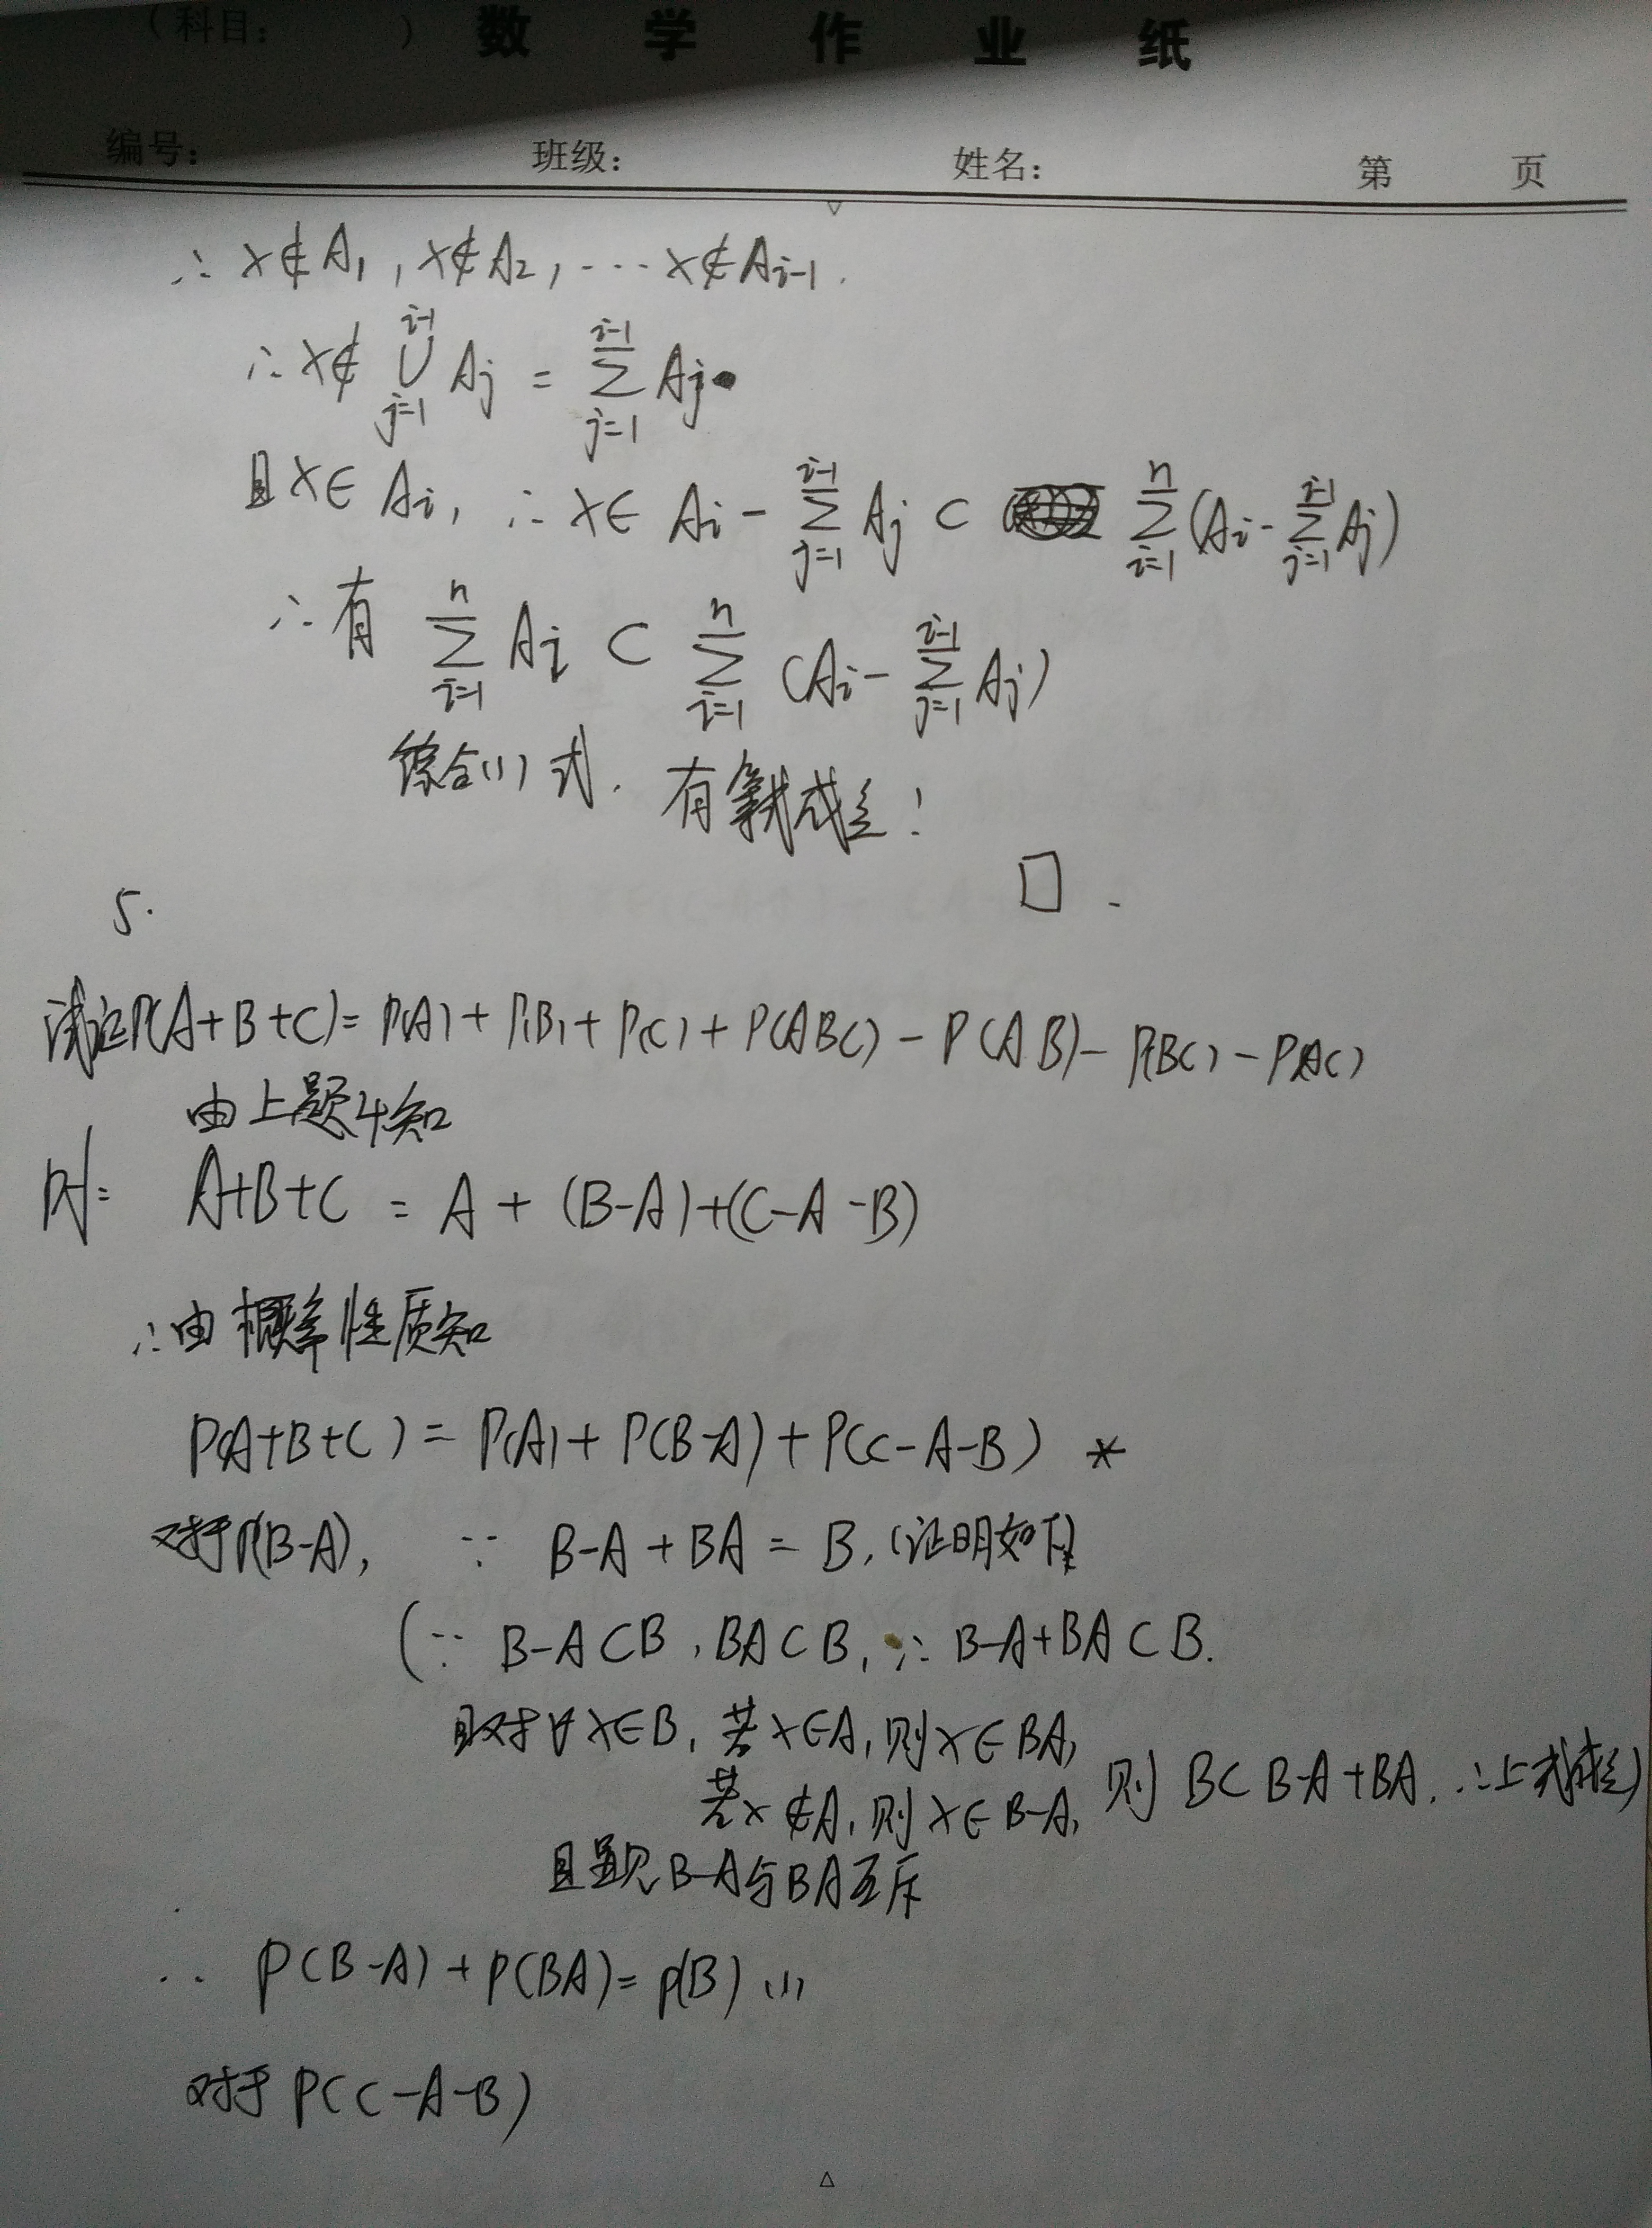 （科目： ） 数 学 作 业 纸
编号： 班级： 姓名： 第 页
∴ x∉A₁, x∉A₂, ⋯ x∉A_{i-1}.
∴ x∉ ⋃_{j=1}^{i-1} A_j = ∑_{j=1}^{i-1} A_j.
且 x∈A_i, ∴ x∈ A_i - ∑_{j=1}^{i-1} A_j ⊂ ∑_{i=1}^{n} (A_i - ∑_{j=1}^{i-1} A_j)
∴ 有 ∑_{i=1}^{n} A_i ⊂ ∑_{i=1}^{n} (A_i - ∑_{j=1}^{i-1} A_j)
综合(1)式. 有等式成立!
□.
5.
试证P(A+B+C)= P(A)+P(B)+P(C)+P(ABC)-P(AB)-P(BC)-P(AC)
由上题4知
pf: A+B+C = A+(B-A)+(C-A-B)
∴由概率性质知
P(A+B+C)= P(A)+P(B-A)+P(C-A-B) *
对于P(B-A), ∵ B-A+BA = B, (证明如下)
(∵ B-A⊂B, BA⊂B, ∴ B-A+BA⊂B.
且对∀x∈B, 若x∈A, 则x∈BA,
若x∉A, 则x∈B-A, 则 B⊂B-A+BA. ∴上式成立)
且显见B-A与BA互斥
∴ P(B-A)+P(BA)=P(B) (1)
对于 P(C-A-B)